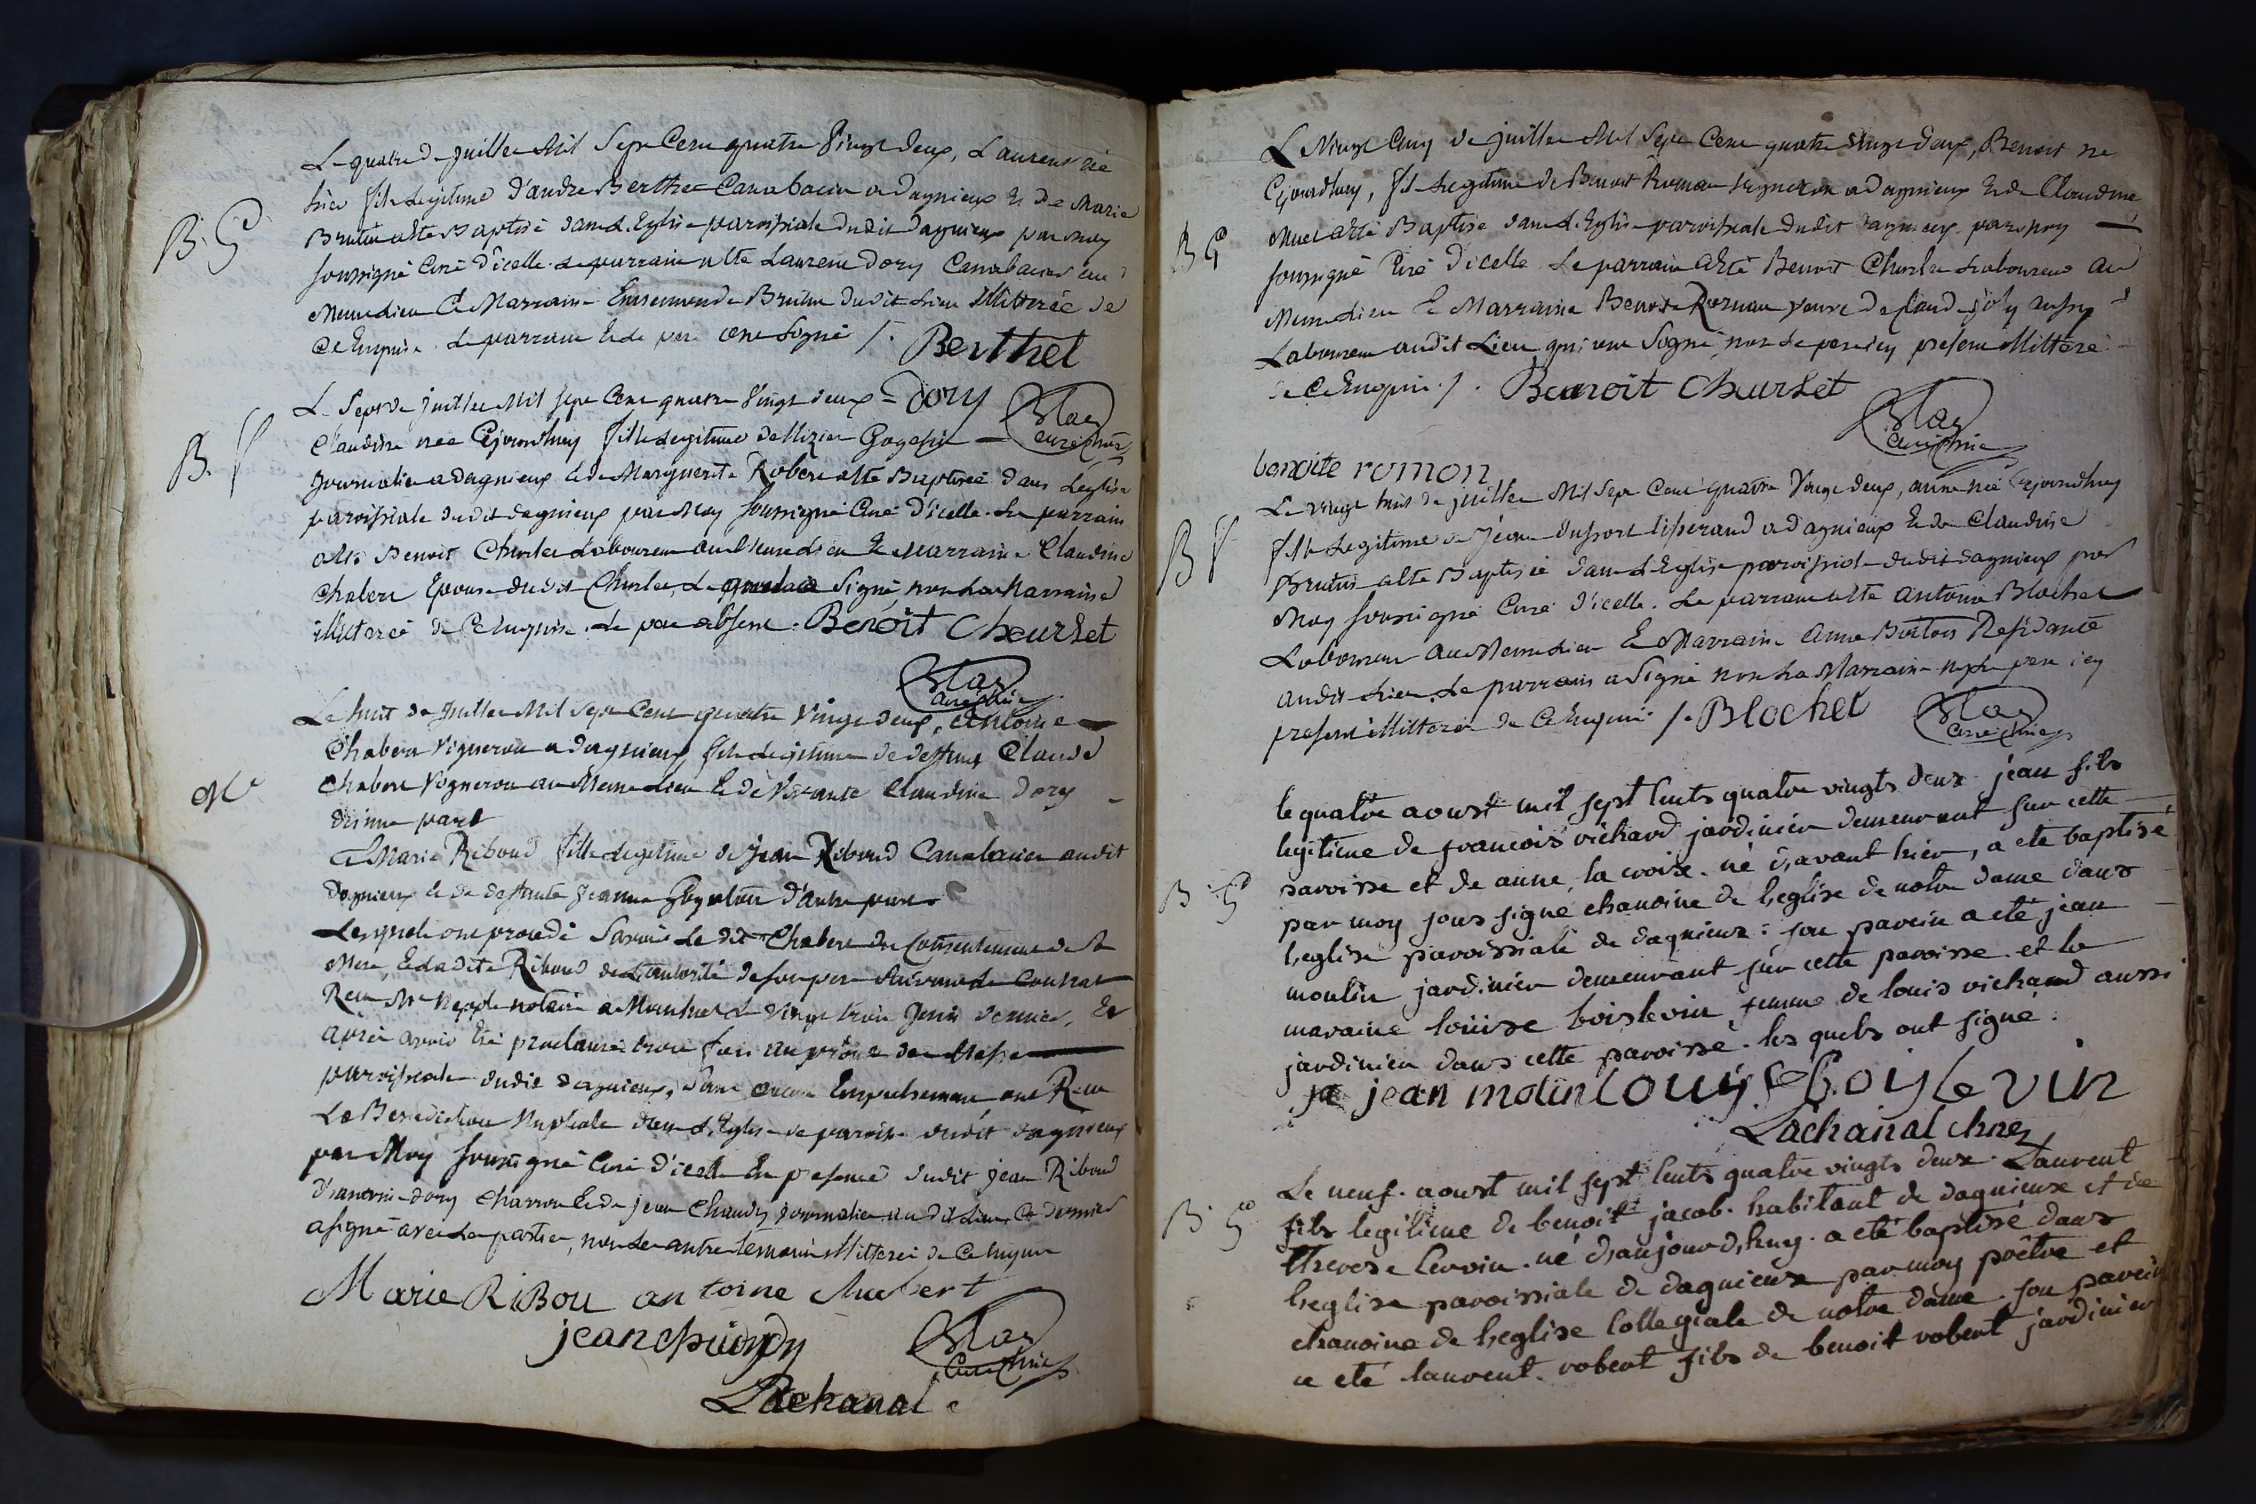 Le quatre de juillet Mil Sept Cent quatre Vingt deux, Laurent né
hier fils Legitime d'andre Berthet Canabacier a Dagnieux Et De Marie
Brutin a Eté Baptisé dans L'Eglise paroissiale Dudit Dagnieux par moy
B. G
soussigné Curé D'icelle. Le parrain a Eté Laurent Dory Canabacier au
Meme Lieu Et Marraine Brutin Dudit Lieu Illitterée De
Ce Enquise. Le parrain Et le pere ont Signé /. Berthet
Le Sept de juillet Mil sept Cent quatre Vingt deux = Dory
Claudine née Cejourdhuy fille Legitime de
Curé
B. f
Journalier a dagnieux Et de Marguerite Robert a Eté Baptisée dans L'église
paroissiale dudit dagnieux par Moy soussigné Curé d'icelle. Le parrain
a Eté Benoit Churlet Laboureur au Meme Lieu Et Marraine Claudine
Chabert Epouse dudit Churlet, Le a Signé non La Marraine
illitterée de Ce Enquise. Le pere absent. Benoit Cheurlet
Curé
Le huit de juillet Mil Sept Cent quatre Vingt deux, Antoine
Chabert Vigneron a dagnieux fils Legitime de deffunt Claude
Chabert Vigneron au Meme Lieu Et de Vivante Claudine Dory
M
d'une part
Et Marie Riboud fille Legitime de Jean Riboud Canabacier audit
Dagnieux Et de deffunte Jeanne d'autre part
Lesquels ont procedé Savoir Le dit Chabert du Consentement de Sa
Mere, Et ladite Riboud de L'autorité de son pere Suivant Le Contrat
Reçu Me notaire a Montluel Le Vingt trois Juin dernier, Et
après avoir Eté proclamés trois fois au prône de la Messe
paroissiale dudit dagnieux, Sans aucun Empechement ont Reçu
La Benediction Nuptiale dans L'Eglise de paroisse dudit dagnieux
par Moy soussigné Curé d'icelle En presence dudit Jean Riboud
D'antoine dory Charron Et de jean Chaudy journalier audit Lieu Ce dernier
a signé avec Les parties, non Les autres temoins illitterés de Ce Enquis
Marie RiBou antoine chabert
jean
Curé
Lachanal
Le Vingt Cinq de juillet Mil Sept Cent quatre Vingt deux, Benoit né
Cejourdhuy, fils Legitime de Benoit Roman Vigneron a Dagnieux Et de Claudine
a Eté Baptisé dans L'Eglise paroissiale dudit dagnieux par moy
B G
soussigné Curé d'icelle Le parrain a Eté Benoit Churlet Laboureur au
Meme Lieu Et Marraine Benoite Roman veuve De Claude Joly aussy
Laboureur audit Lieu qui ont Signé non Le pere icy present illitteré
de Ce Enquis /. Benoit Cheurlet
Curé
benoite romon
Le vingt huit de juillet Mil Sept Cent quatre Vingt deux, anne née Cejourdhuy
fille Legitime de Jean tisserand a dagnieux Et de Claudine
B f
Brutin a Eté Baptisée dans L'Eglise paroissiale dudit dagnieux par
Moy soussigné Curé d'icelle. Le parrain a Eté antoine Blochet
Laboureur au Meme Lieu Et Marraine anne Residante
audit Lieu, Le parrain a Signé non La Marraine ny Le pere icy
present illitterés de Ce Enquis /. Blochet
Curé
le quatre aoust mil sept cents quatre vingts deux jean fils
legitime de francois vichard jardinier demeurant sur cette
paroisse et de anne la croix. né d'avant hier, a eté baptisé
B. G
par moy sous signé chanoine de l'eglise de notre dame dans
l'eglise paroissiale de dagnieux: son parein a eté jean
moulin jardinier demeurant sur cette paroisse. et la
maraine louise boislevin femme de louis vichard aussi
jardinier dans cette paroisse. les quels ont signé:
jean molin louyse boyslevin
Lachanal chne
Le neuf. aoust mil sept cents quatre vingts deux. Laurent
B. G
fils legitime de benoit jacob. habitant de dagnieux et de
therese né d'aujourd'huy. a eté baptisé dans
l'eglise paroissiale de dagnieux par moy prêtre et
chanoine de l'eglise collegiale de notre dame. son parein
a eté laurent. robert fils de benoit robert jardinier